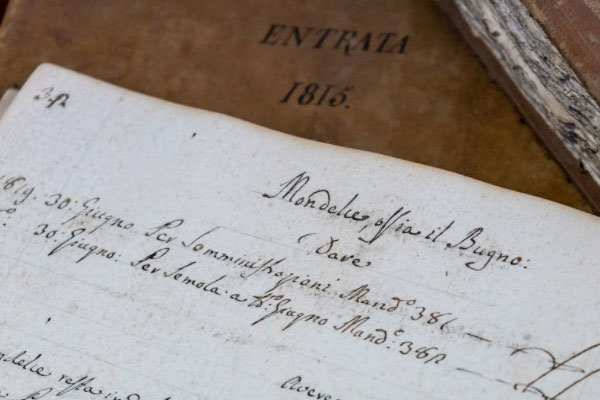 ENTRATA
1815.
Mondelce, ossia il Bugno:
Dare
1819. 30: Giugno Per Somministrazioni Mand.º 381
30. Giugno: Per Semola: a Giugno Mand.º 382
resta in
Avere